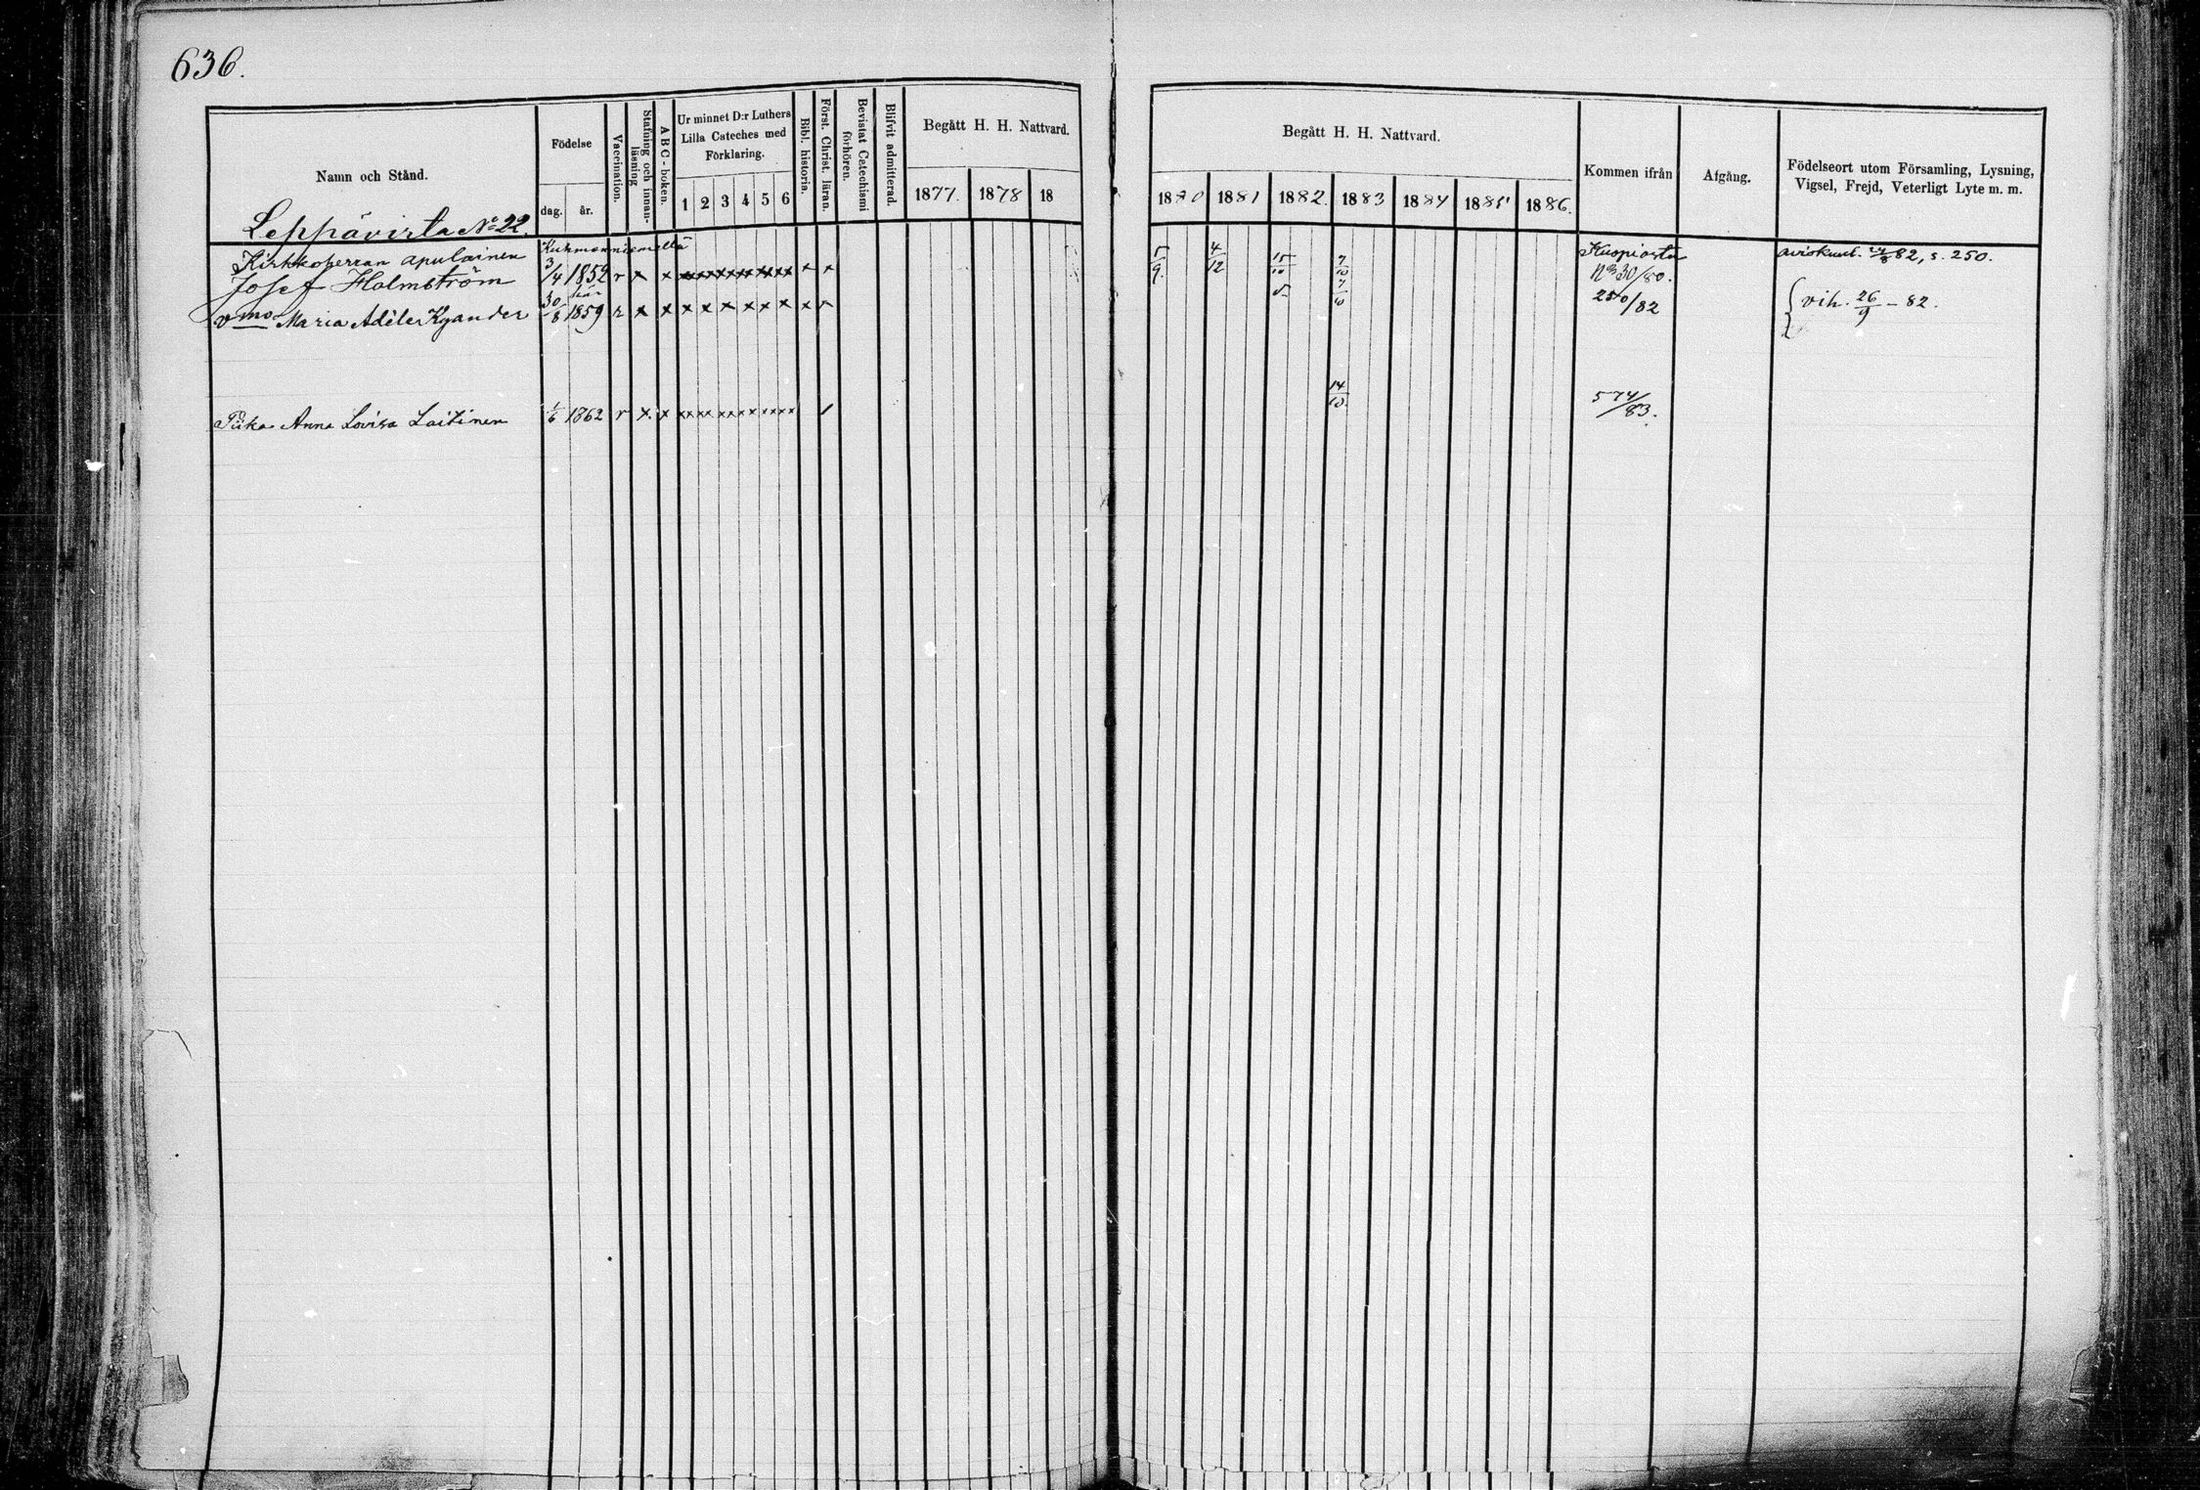 636.
Namn och Stånd.
Födelse
dag.
år.
Vaccination.
Stafning och innan-
läsning
ABC-boken.
Ur minnet D:r Luthers
Lilla Cateches med
Förklaring.
1 2 3 4 5 6
Bibl. historia.
Först. Christ. läran.
Bevistat Catechismi
förhören.
Blifvit admitterad.
Begått H. H. Nattvard.
1877. 1878 18
Begått H. H. Nattvard.
1880 1881 1882. 1883 1884 1885 1886.
Kommen ifrån
Afgång.
Födelseort utom Församling, Lysning,
Vigsel, Frejd, Veterligt Lyte m. m.
Leppävirta No 22.
Kirkkoherran apulainen Kuhmoniemellä Kuopiosta aviokuul. 82, s. 250.
Josef Holmström 3/4 1852 r x x x x x x x x x x 5/9. 4/12 15/10 7/10 No 30/80.
vmo Maria Adéle Kyander 30/8 1859 r x x x x x x x x x 7/10 250/82 vih. 26/9 - 82.
Piika Anna Lovisa Laitinen 1/6 1862 r x x x x x x x x 14/10. 574/83.